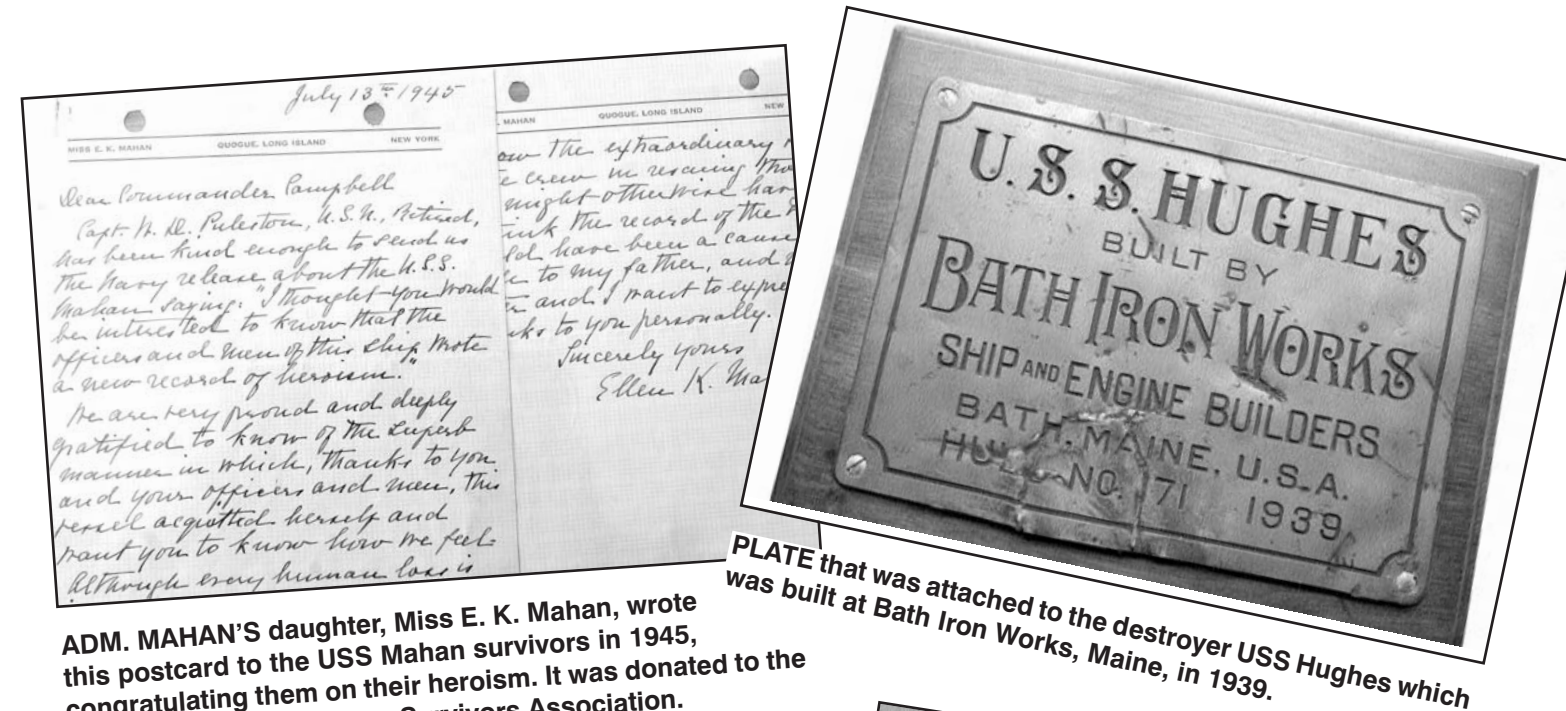 July 13th 1945
MISS E. K. MAHAN QUOGUE, LONG ISLAND NEW YORK
Dear Commander Campbell
Capt. W. D. Puleston, U.S.N., Retired,
has been kind enough to send us
the Navy release about the U.S.S.
Mahan saying: "I thought you would
be interested to know that the
officers and men of this ship wrote
a new record of heroism."
We are very proud and deeply
gratified to know of the superb
manner in which, thanks to you
and your officers and men, this
vessel acquitted herself and
want you to know how we feel.
Although every human loss is
MAHAN QUOGUE, LONG ISLAND NEW
the extraordinary
crew in rescuing
might otherwise
the record of the
have been a cause
to my father, and
and I want to
to you personally.
Sincerely yours
Ellen K.
ADM. MAHAN'S daughter, Miss E. K. Mahan, wrote
this postcard to the USS Mahan survivors in 1945,
congratulating them on their heroism. It was donated to the
Survivors Association.
U.S.S. HUGHES
BUILT BY
BATH IRON WORKS
SHIP AND ENGINE BUILDERS
BATH, MAINE, U.S.A.
HULL NO. 71 1939
PLATE that was attached to the destroyer USS Hughes which
was built at Bath Iron Works, Maine, in 1939.